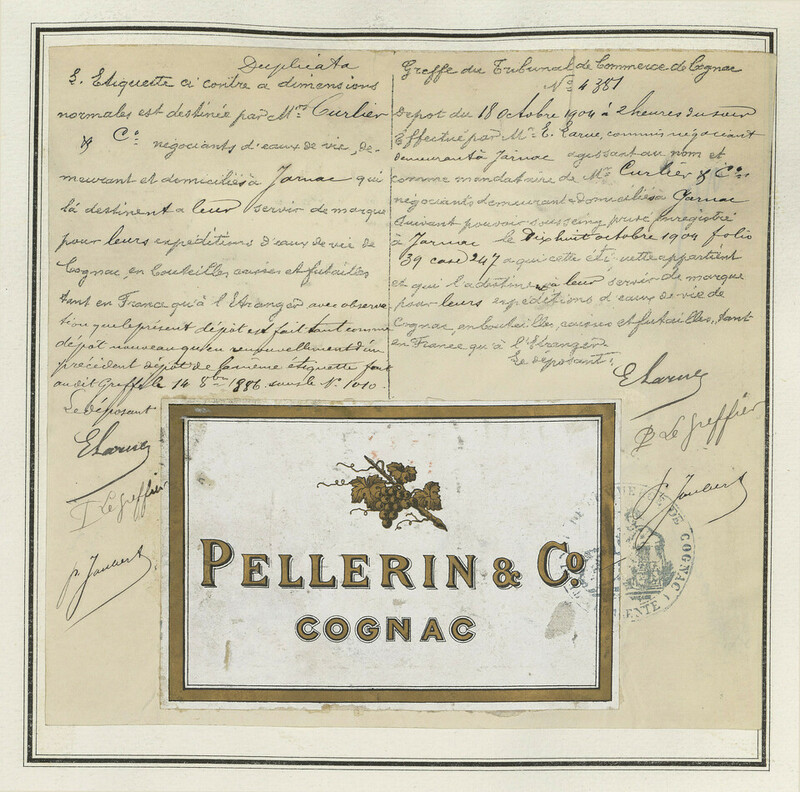 Duplicata
L. Etiquette ci contre a dimensions
normales est destinée par Mrs Curlier
& Co négociants d'eaux de vie, de-
meurant et domiciliés à Jarnac qui
la destinent a leur servir de marque
pour leurs expéditions d'eaux de vie de
Cognac, en bouteilles, caisses et futailles
tant en France qu'à l'Etranger avec observa-
tion que le présent dépôt est fait tant comme
dépôt nouveau qu'en renouvellement d'un
précédent dépôt de la même étiquette fait
au dit Greffe le 14 8bre 1886 sous le No 1010.
Le déposant
E Larue
P Le Greffier
P. Joubert
Greffe du Tribunal de Commerce de Cognac
No 4381
Depot du 18 Octobre 1904 à 2 heures du soir
Effectué par Mr. E. Larue, commis négociant
demeurant à Jarnac agissant au nom et
comme mandataire de Mrs Curlier & Co
négociants demeurant & domiciliés à Jarnac
suivant pouvoir sous seing privé enregistré
à Jarnac le Dix huit octobre 1904 folio
39 case 247 a qui cette étiquette appartient
et qui la destinent à leur servir de marque
pour leurs expéditions d'eaux de vie de
Cognac, en bouteilles, caisses et futailles, tant
en France qu'à l'Etranger
Le déposant:
E Larue
P Le Greffier
P. Joubert
PELLERIN & Co
COGNAC
DE COMMERCE DE COGNAC